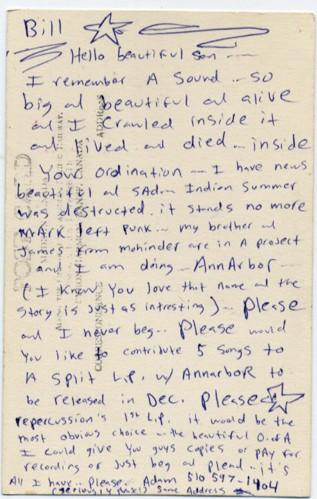 Bill
Hello beautiful son —
I remember A Sound -- so
big and beautiful and alive
and I crawled inside it
and lived and died -- inside
Your ordination -- I have news
beautiful and sad Indian Summer
was destructed. it stands no more
Mark left Punk -- my brother and
James from mohinder are in A project
and I am doing -- AnnArbor --
(I know You love that name and the
story is Just as intresting) -- Please
and I never beg -- Please would
You like to contribute 5 songs to
A Split L.P. w/ Annarbor to
be released in Dec. Please
repercussion's 1st L.P. it would be the
most obvious choice -- the beautiful O. of A
I could give You guys copies or pay for
recording or Just beg and plead -- it's
All I have -- Please. Adam 510 597-1904
Same Address